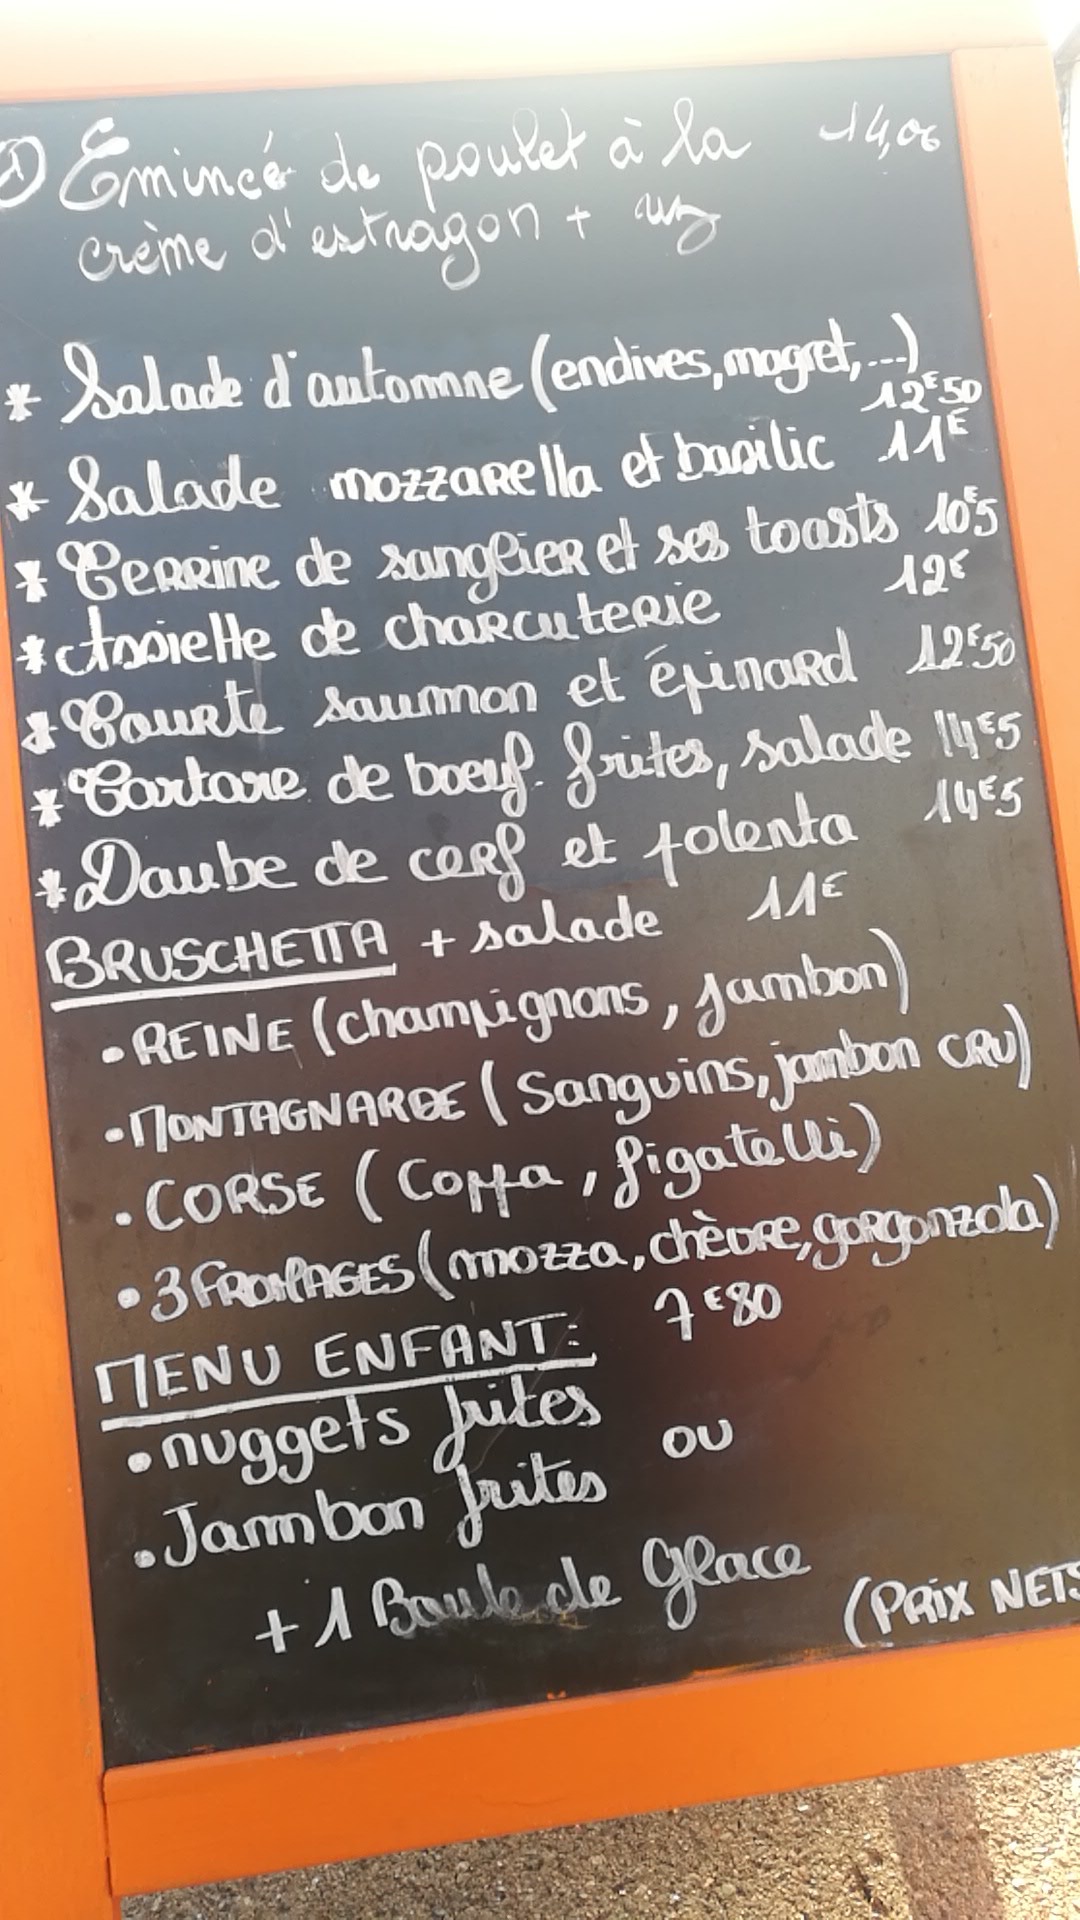 Emincé de poulet à la 14,00
crème d'estragon + riz
* Salade d'automne (endives, magret,...)
12€50
* Salade mozzarella et basilic 11€
* Terrine de sanglier et ses toasts 10€5
* Assiette de charcuterie 12€
* Tourte saumon et épinard 12€50
* Tartare de boeuf. frites, salade 14€5
* Daube de cerf et polenta 14€5
BRUSCHETTA + salade 11€
• REINE (champignons, jambon)
• MONTAGNARDE (Sanguins, jambon CRU)
• CORSE (Coppa, figatelli)
• 3 FROMAGES (mozza, chèvre, gorgonzola)
MENU ENFANT: 7€80
• nuggets frites
ou
• Jambon frites
+ 1 Boule de Glace
(PRIX NETS